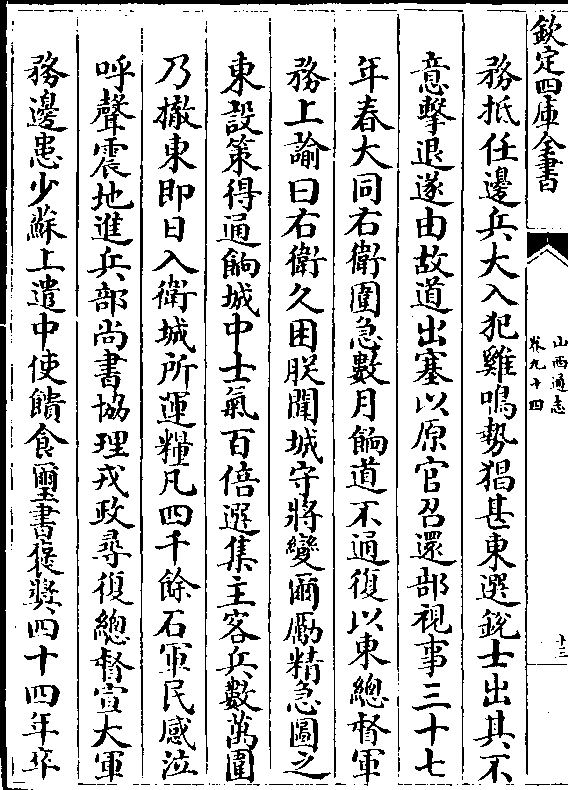 欽定四庫全書
山西通志
卷九十四
十三
務抵任邊兵大入犯雞鳴勢猖甚東選銳士出其不
意擊退遂由故道出塞以原官召還部視事三十七
年春大同右衛圍急數月餉道不通復以東總督軍
務上諭曰右衛久困朕聞城守將變爾勵精急圖之
東設策得通餉城中士氣百倍選集主客兵數萬圍
乃撤東即日入衛城所運糧凡四千餘石軍民感泣
呼聲震地進兵部尚書協理戎政尋復總督宣大軍
務邊患少蘇上遣中使饋食璽書褒奬四十四年卒